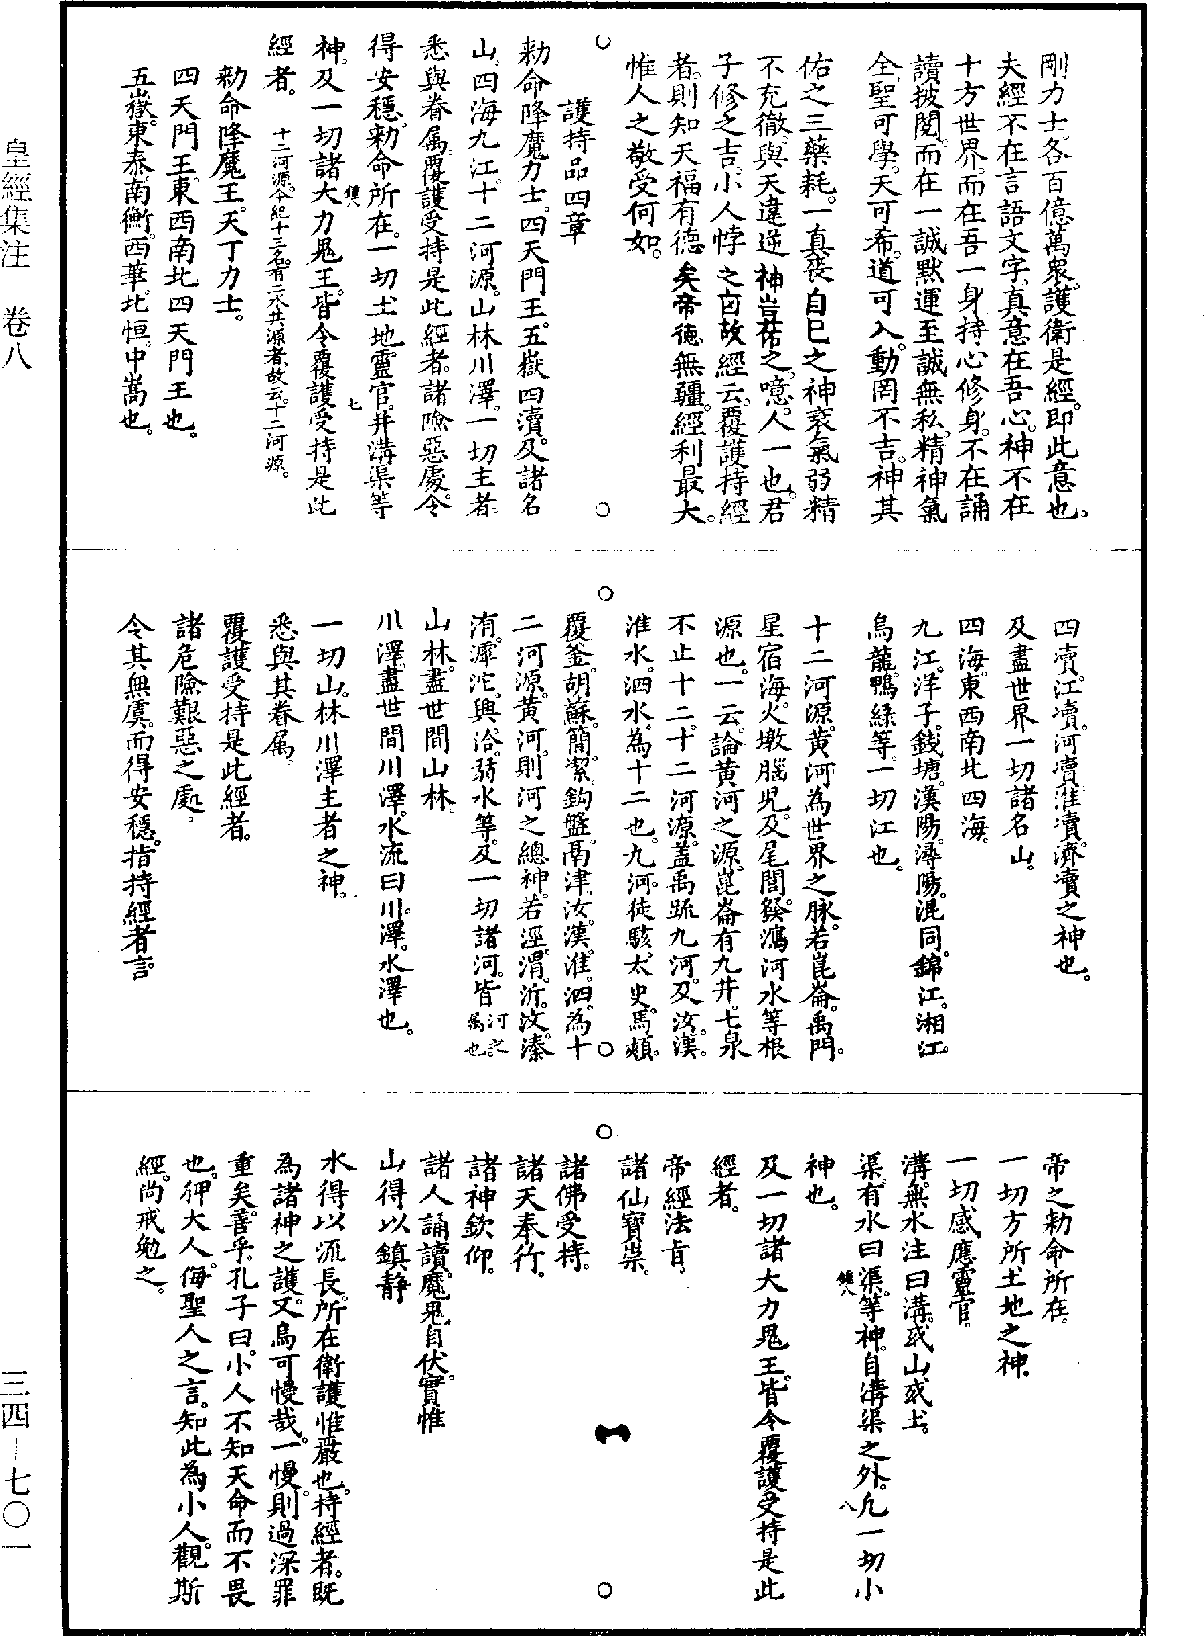 剛力士。各百億萬衆。護衛是經。即此意也。
夫經不在言語文字。真意在吾心。神不在
十方世界。而在吾一身。持心修身。不在誦
讀披閱。而在一誠默運。至誠無私。精神氣
全。聖可學。天可希。道可入。動罔不吉。神其
佑之。三藥耗。一真喪。自己之神衰氣弱精
不充徹。與天違逆。神豈祐之。噫。人一也。君
子修之吉。小人悖之凶。故經云。覆護持經
者。則知天福有德矣。帝德無疆。經利最大。
惟人之敬受何如。
護持品四章
勑命降魔力士。四天門王。五嶽四瀆。及諸名
山。四海九江。十二河源。山林川澤。一切主者。
悉與眷属。覆護受持是此經者。諸險惡處。令
得安穩。勑命所在。一切土地靈官。井溝渠等
神。及一切諸大力鬼王。皆令覆護受持是此
經者。十二河源。今紀十三名。有二水共源者。故云。十二河源。
勑命。降魔王。天丁力士。
四天門王。東西南北四天門王也。
五嶽。東泰。南衡。西華。北恒。中嵩也。
四瀆。江瀆。河瀆。淮瀆。濟瀆之神也。
及盡世界一切諸名山。
四海。東西南北四海。
九江。洋子。錢塘。漢陽。潯陽。混同。錦江。湘江。
烏龍。鴨綠等。一切江也。
十二河源。黃河為世界之脉。若崑崙。禹門。
星宿海。火墩腦兒。及尾閭。發鴻河水等根
源也。一云。論黃河之源。崑崙有九井。七泉
不止十二。十二河源。蓋禹疏九河。及汝。漢。
淮水。泗水。為十二也。九河。徒駭。太史。馬頰。
覆釜。胡蘇。簡潔。鈎盤。鬲津。汝。漢。淮。泗。為十
二河源。黃河。則河之總神。若涇。渭。沂。汶。溱
洧。滹沱。與洽。弱水等。及一切諸河。皆河之属也
山林。盡世間山林。
川澤。盡世間川澤。水流曰川。澤。水澤也。
一切山。林川澤主者之神。
悉與其眷属。
覆護受持是此經者。
諸危險艱惡之處。
令其無虞。而得安穩。指持經者言。
帝之勑命所在。
一切方所。土地之神。
一切感應靈官。
溝。無水注曰溝。或山或土。
渠。有水曰渠。等神。自溝渠之外。凡一切小
神也。
及一切諸大力鬼王。皆令覆護受持是此
經者。
帝經法旨。
諸仙寶崇。
諸佛受持。
諸天奉行。
諸神欽仰。
諸人誦讀。魔鬼自伏。實惟
山得以鎮静
水得以流長。所在衛護惟嚴也。持經者。既
為諸神之護。又烏可慢哉。一慢。則過深罪
重矣。善乎。孔子曰。小人不知天命而不畏
也。狎大人。侮聖人之言。知此為小人。觀斯
經。尚戒勉之。
皇經集注　卷八
三四—七〇一